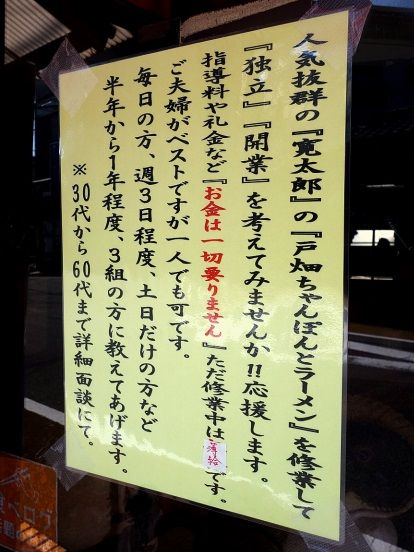 人気抜群の『寛太郎』の『戸畑ちゃんぽんとラーメン』を修業して
『独立』『開業』を考えてみませんか!!応援します。
指導料や礼金など『お金は一切要りません』ただ修業中は無給です。
ご夫婦がベストですが一人でも可です。
毎日の方、週3日程度、土日だけの方など
半年から1年程度、3組の方に教えてあげます。
※30代から60代まで詳細面談にて。
食べログ